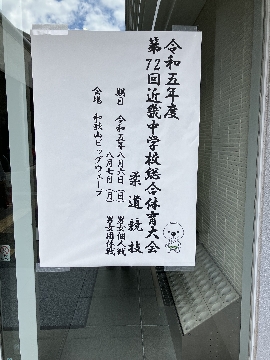 令和五年度
第72回近畿中学校総合体育大会
柔道競技
期日 令和五年八月六日(日) 男女個人戦
八月七日(月) 男女団体戦
会場 和歌山ビッグウェーブ